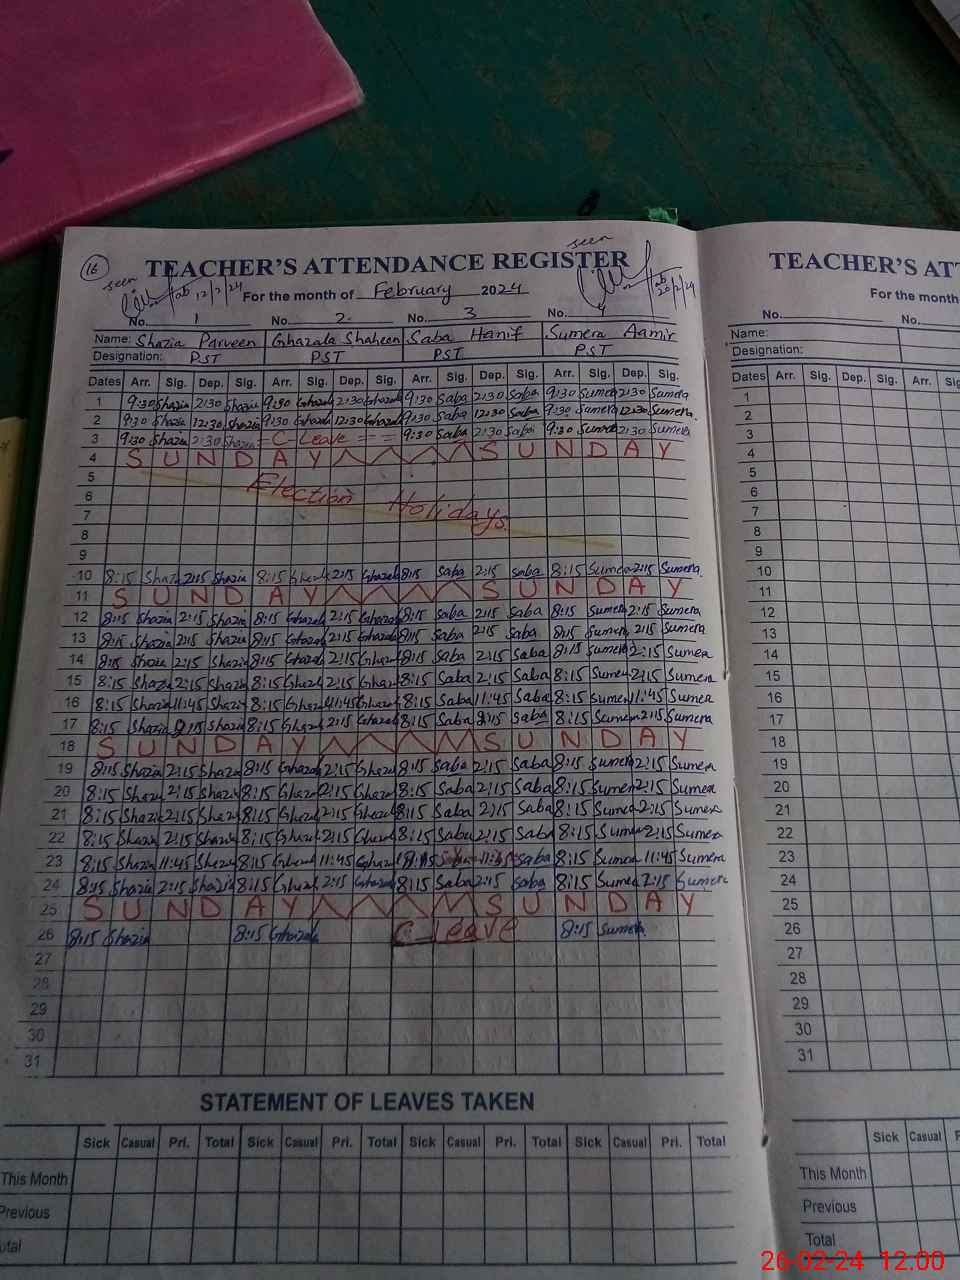 16
seen
seen
TEACHER'S ATTENDANCE REGISTER
12/2/24
20/2/24
For the month of February 2024
No. 1 No. 2 No. 3 No. 4
Name: Shazia Parveen Ghazala Shaheen Saba Hanif Sumera Aamir
Designation: PST PST PST PST
Dates Arr. Sig. Dep. Sig. Arr. Sig. Dep. Sig. Arr. Sig. Dep. Sig. Arr. Sig. Dep. Sig.
1 9:30 Shazia 2:30 Shazia 9:30 Ghazala 2:30 Ghazala 9:30 Saba 2:30 Saba 9:30 Sumera 2:30 Sumera
2 9:30 Shazia 12:30 Shazia 9:30 Ghazala 12:30 Ghazala 9:30 Saba 12:30 Saba 9:30 Sumera 12:30 Sumera
3 9:30 Shazia 2:30 Shazia C-Leave 9:30 Saba 2:30 Saba 9:30 Sumera 2:30 Sumera
4 SUNDAY SUNDAY
5 Election Holidays
6
7
8
9
10 8:15 Shazia 2:15 Shazia 8:15 Ghazala 2:15 Ghazala 8:15 Saba 2:15 Saba 8:15 Sumera 2:15 Sumera
11 SUNDAY SUNDAY
12 8:15 Shazia 2:15 Shazia 8:15 Ghazala 2:15 Ghazala 8:15 Saba 2:15 Saba 8:15 Sumera 2:15 Sumera
13 8:15 Shazia 2:15 Shazia 8:15 Ghazala 2:15 Ghazala 8:15 Saba 2:15 Saba 8:15 Sumera 2:15 Sumera
14 8:15 Shazia 2:15 Shazia 8:15 Ghazala 2:15 Ghazala 8:15 Saba 2:15 Saba 8:15 Sumera 2:15 Sumera
15 8:15 Shazia 2:15 Shazia 8:15 Ghazala 2:15 Ghazala 8:15 Saba 2:15 Saba 8:15 Sumera 2:15 Sumera
16 8:15 Shazia 11:45 Shazia 8:15 Ghazala 11:45 Ghazala 8:15 Saba 11:45 Saba 8:15 Sumera 11:45 Sumera
17 8:15 Shazia 2:15 Shazia 8:15 Ghazala 2:15 Ghazala 8:15 Saba 2:15 Saba 8:15 Sumera 2:15 Sumera
18 SUNDAY SUNDAY
19 8:15 Shazia 2:15 Shazia 8:15 Ghazala 2:15 Ghazala 8:15 Saba 2:15 Saba 8:15 Sumera 2:15 Sumera
20 8:15 Shazia 2:15 Shazia 8:15 Ghazala 2:15 Ghazala 8:15 Saba 2:15 Saba 8:15 Sumera 2:15 Sumera
21 8:15 Shazia 2:15 Shazia 8:15 Ghazala 2:15 Ghazala 8:15 Saba 2:15 Saba 8:15 Sumera 2:15 Sumera
22 8:15 Shazia 2:15 Shazia 8:15 Ghazala 2:15 Ghazala 8:15 Saba 2:15 Saba 8:15 Sumera 2:15 Sumera
23 8:15 Shazia 11:45 Shazia 8:15 Ghazala 11:45 Ghazala 8:15 Saba 11:45 Saba 8:15 Sumera 11:45 Sumera
24 8:15 Shazia 2:15 Shazia 8:15 Ghazala 2:15 Ghazala 8:15 Saba 2:15 Saba 8:15 Sumera 2:15 Sumera
25 SUNDAY SUNDAY
26 8:15 Shazia 8:15 Ghazala C Leave 8:15 Sumera
27
28
29
30
31
STATEMENT OF LEAVES TAKEN
Sick Casual Pri. Total Sick Casual Pri. Total Sick Casual Pri. Total Sick Casual Pri. Total
This Month
Previous
otal
TEACHER'S AT
For the month
No. No.
Name:
Designation:
Dates Arr. Sig. Dep. Sig. Arr.
1
2
3
4
5
6
7
8
9
10
11
12
13
14
15
16
17
18
19
20
21
22
23
24
25
26
27
28
29
30
31
Sick Casual P
This Month
Previous
Total
26-02-24 12.00